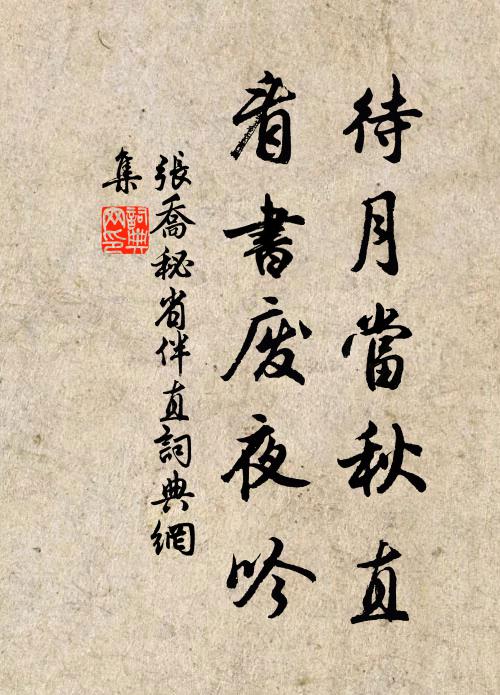 待月當秋直
看書废夜吟
張喬秘省伴直詞典網
集
詞典
网印